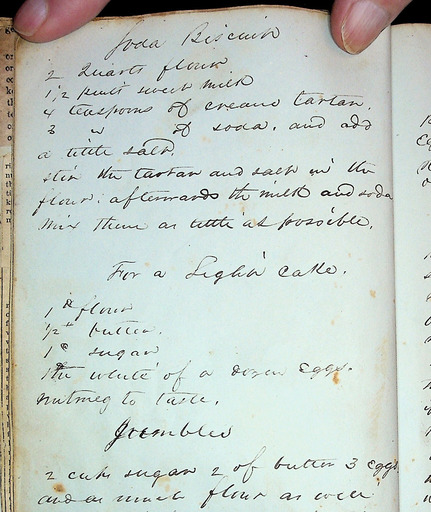 Soda Biscuit
2 Quarts flour
1 1/2 pints sweet milk
4 teaspoons of creame tartar.
2 " of soda. and add
a little salt.
stir the tartar and salt in the
flour: afterwards the milk and soda
mix them as little as possible.
For a Light cake.
1 lb flour
1/2 " butter.
1 " sugar
the white of a dozen eggs.
nutmeg to taste.
Jumbles
2 cups sugar 2 of butter 3 eggs
and as much flour as will